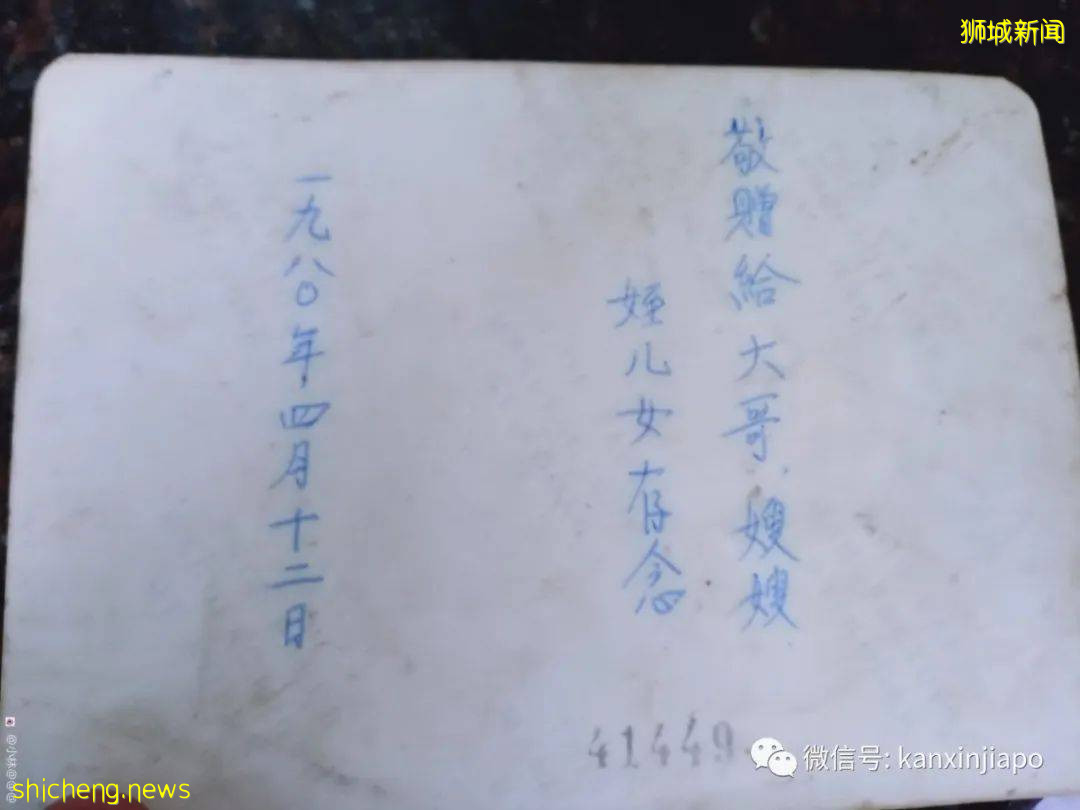 狮城新闻
敬贈給大哥.嫂嫂
姪儿女存念
一九八〇年四月十二日
41449
微信号: kanxinjiapo
shicheng.news